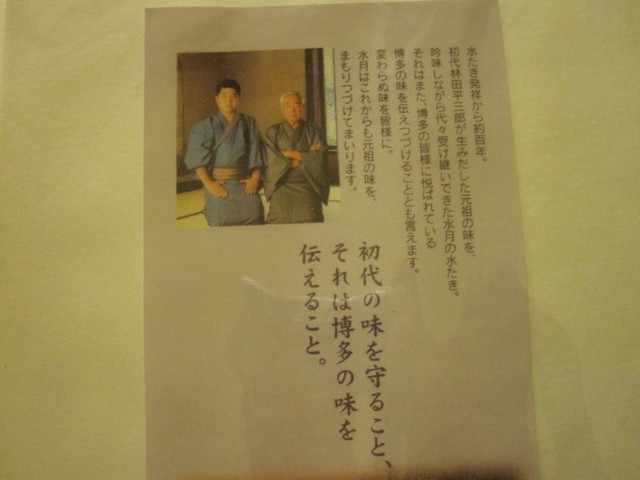 水たき発祥から約百年。
初代林田平三郎が生みだした元祖の味を、
吟味しながら代々受け継いできた水月の水たき。
それはまた、博多の皆様に悦ばれている
博多の味を伝えつづけることとも言えます。
変わらぬ味を皆様に。
水月はこれからも元祖の味を、
まもりつづけてまいります。
初代の味を守ること、
それは博多の味を
伝えること。